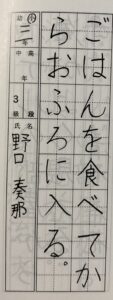 ごはんを食べてか
らおふろに入る。
幼 小 中 高 三年
3 級 段
氏名 野口 奏那